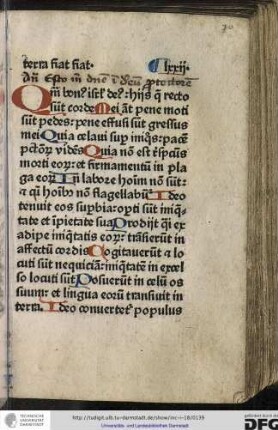 terra fiat fiat. lxxij.
Añ Esto m̄ dñe ī deū ꝓtectorē
Qm̄ bonꝰ isrl̓ deꝰ: hijs q̄ recto
sūt corde Mei āt pene moti
sūt pedes: pene effusi sūt gressus
mei Quia celaui sup̄ iniq̄s: pacē
pctōrꝫ vidēs Quia nō est r̄spcūs
morti eorꝫ: et firmamentū in pla
ga eorꝫ In labore hoīm nō sūt:
⁊ cū hoībꝰ nō flagellabūtr̄ Ideo
tenuit eos sup̄bia: op̄ti sūt iniq̄
tate et īpietate sua Prodijt q̄si ex
adipe iniq̄tatis eorꝫ: trāsierūt in
affectū cordis Cogitauerūt ⁊ lo
cuti sūt nequiciā: iniq̄tatē in excel
so locuti sūt Posuerūt in celū os
suum: et lingua eorū transiuit in
terra. Ideo conuertetr̄ populus
TECHNISCHE UNIVERSITÄT DARMSTADT
http://tudigit.ulb.tu-darmstadt.de/show/inc-i-18/0139
Universitäts- und Landesbibliothek Darmstadt
gefördert durch die
DFG